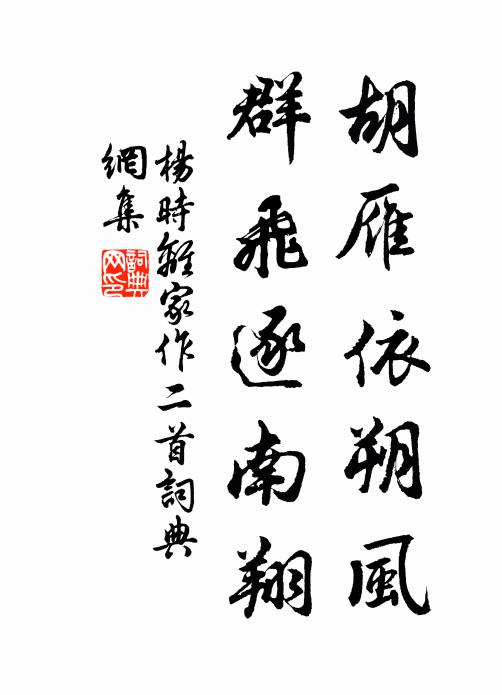 胡雁依朔風
群飛逐南翔
楊時離家作二首詞典
網集
詞典
网印